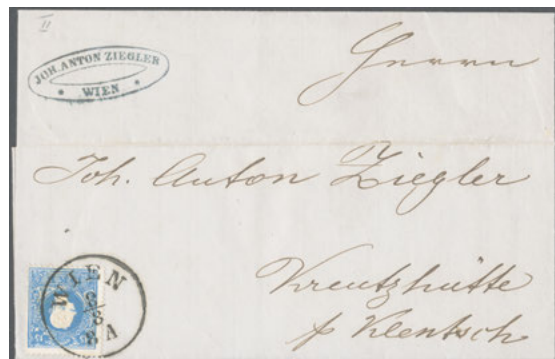 II
JOH. ANTON ZIEGLER
* WIEN *
Herrn
Joh. Anton Ziegler
Kreutzhütte
p Klentsch
WIEN
8A